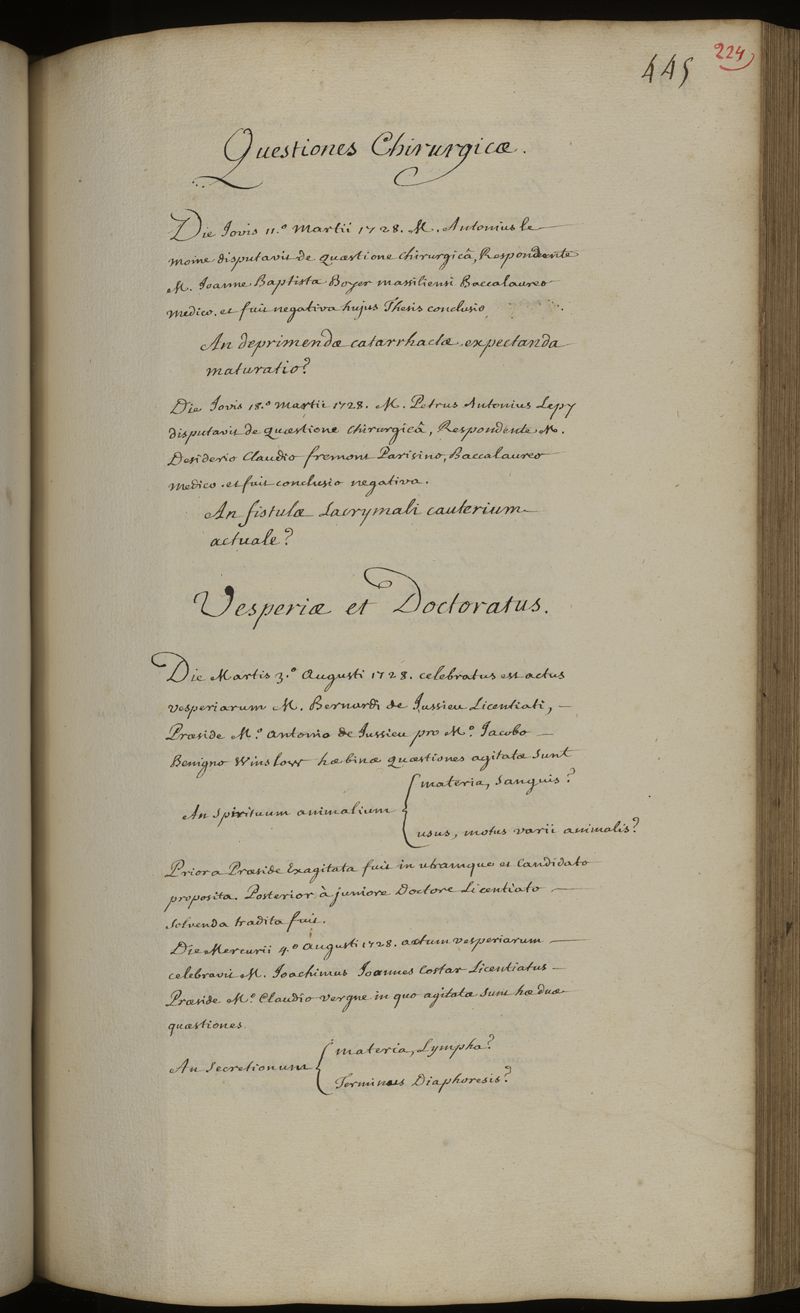 445 224
Questiones Chirurgicæ.
Die Jovis 11.º Martii 1728. M. Antonius le
moine disputavit de quæstione chirurgicâ, Respondente
M. Joanne Baptista Boyer massiliensi Baccalaureo
medico. et fuit negativa hujus Thesis conclusio
An deprimendæ catarrhactæ expectanda
maturatio?
Die Jovis 18.º Martii 1728. M. Petrus Antonius Lepy
disputavit de quæstione chirurgicâ, Respondente M.
Desiderio Claudio fremont Parisino, Baccalaureo
medico. et fuit conclusio negativa.
An fistulæ Lacrymali cauterium
actuale?
Vesperiæ et Doctoratus.
Die Martis 3.º Augusti 1728. celebratus est actus
vesperiarum M. Bernardi de Jussieu Licentiati, —
Præside M.º Antonio de Jussieu pro M.º Jacobo —
Benigno Winslow hæ binæ quæstiones agitatæ sunt
{ materia, Sanguis?
An Spirituum animalium
usus, motus varii animalis?
Priora Præside Exagitata fuit in utramque et Candidato
proposita. Posterior à juniore Doctore Licentiato —
solvenda tradita fuit.
Die Mercurii 4.º Augusti 1728. actum vesperiarum —
celebravit M. Joachimus Joannes Costar Licentiatus —
Præside M.º Claudio Vergne in quo agitatæ sunt hæ duæ
quæstiones
{ materia, Lympha?
An Secretionum
Terminus Diaphoresis?